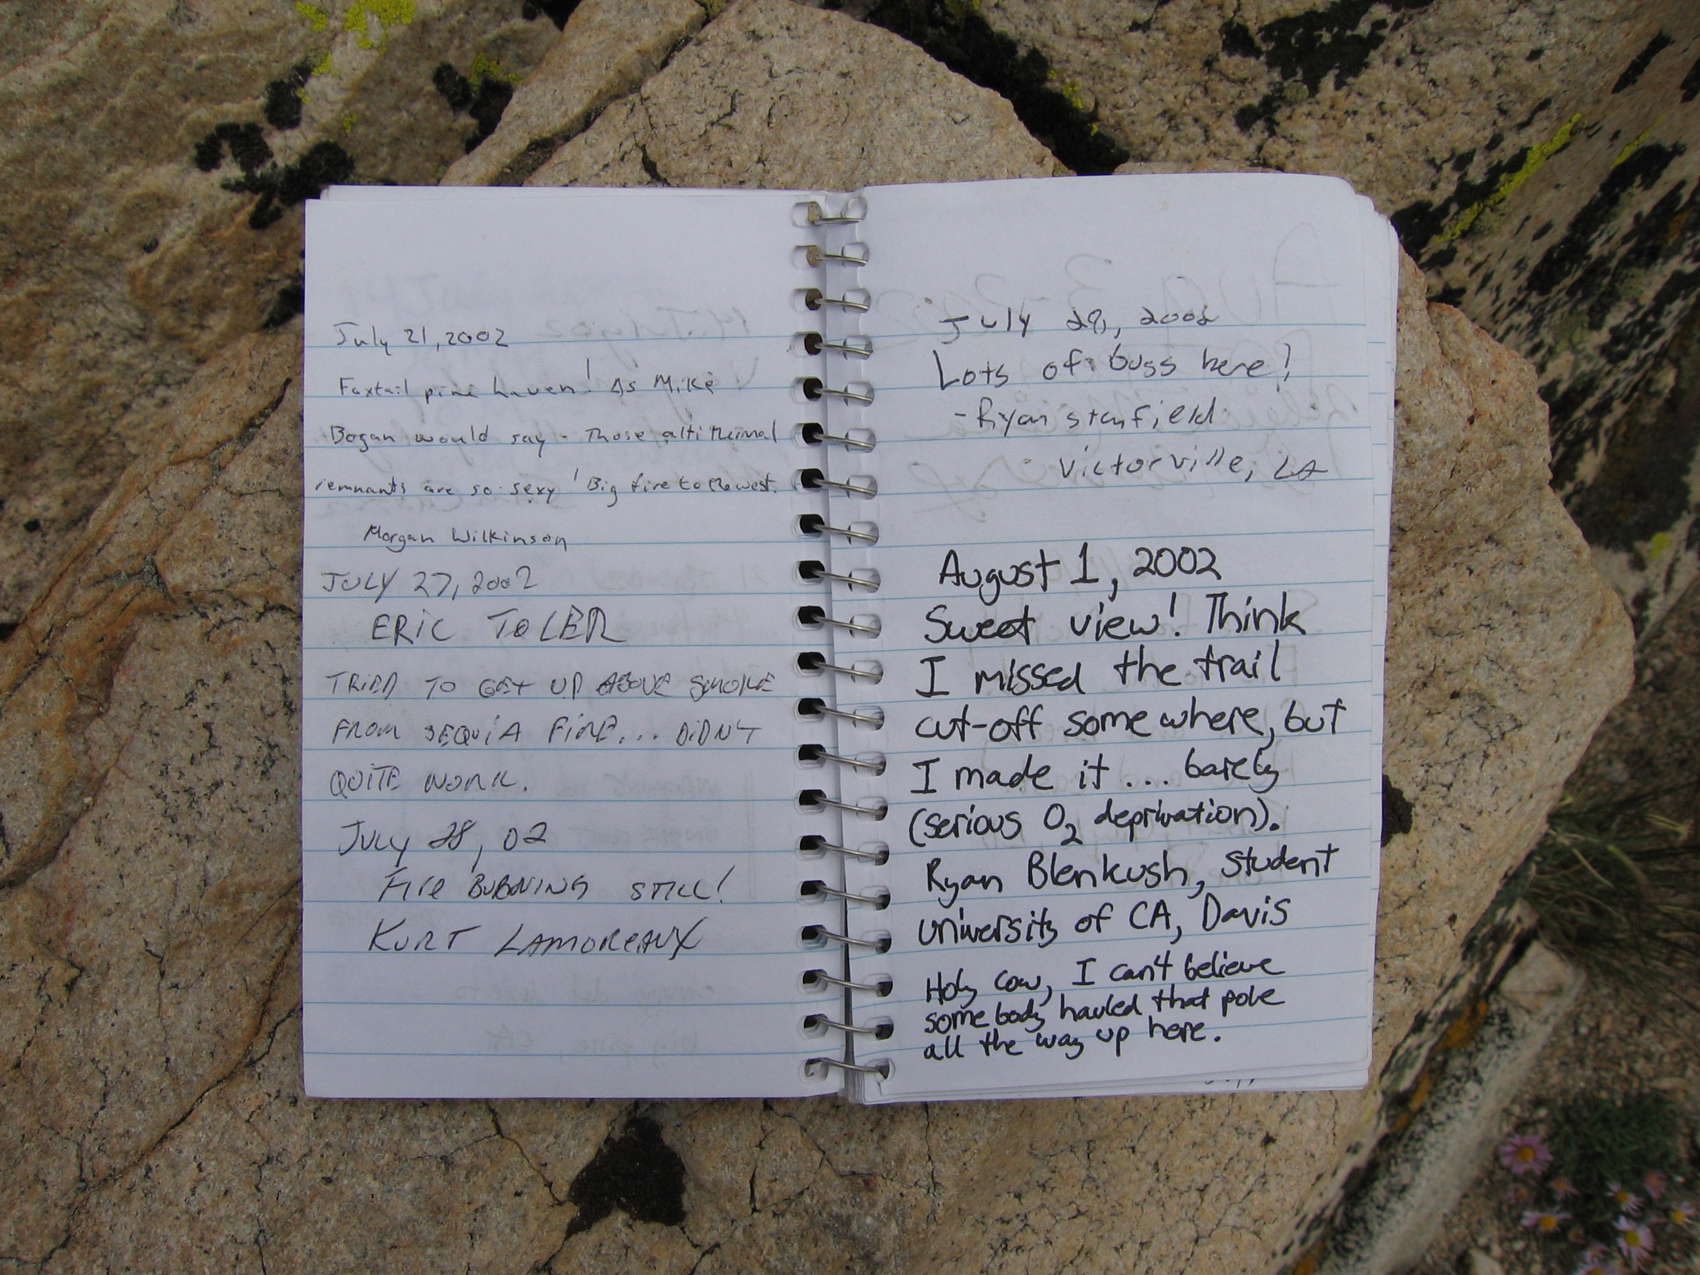 July 21, 2002
Foxtail pine haven! As Mike
Bogan would say - Those altithermal
remnants are so sexy! Big fire to the west.
Morgan Wilkinson
JULY 27, 2002
ERIC TOLER
TRIED TO GET UP ABOVE SMOKE
FROM SEQUIA FIRE... DIDN'T
QUITE WORK.
JULY 28, 02
FIRE BURNING STILL!
KURT LAMOREAUX
July 29, 2002
Lots of bugs here!
- Ryan Stanfield
Victorville, CA
August 1, 2002
Sweet view! Think
I missed the trail
cut-off somewhere, but
I made it ... barely
(serious O₂ deprivation).
Ryan Blenkush, student
University of CA, Davis
Holy cow, I can't believe
somebody hauled that pole
all the way up here.